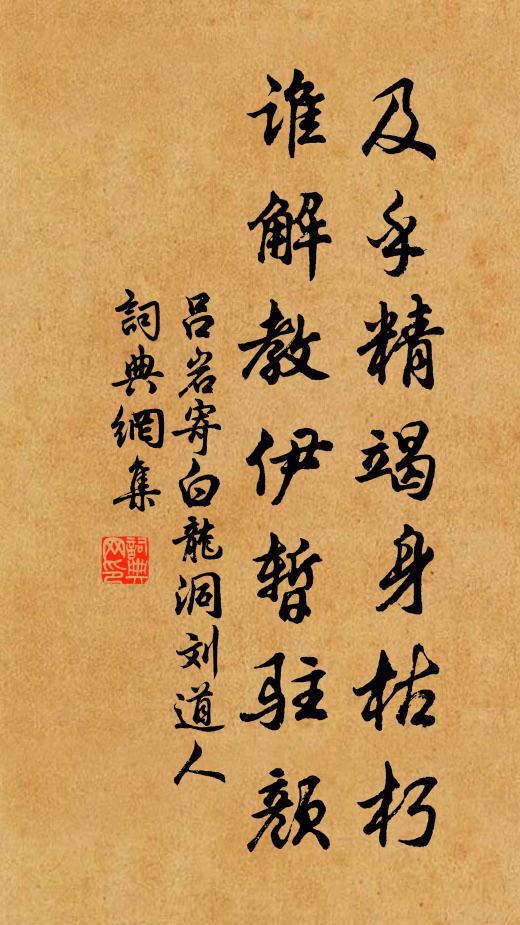 及乎精竭身枯朽
谁解教伊暂驻颜
吕岩寄白龍洞刘道人
詞典網集
詞典
网印